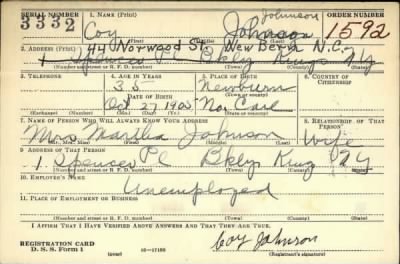 SERIAL NUMBER 1. NAME (Print) ORDER NUMBER
3332 Coy Johnson Johnson 1592
(First) (Middle) (Last)
2. ADDRESS (Print) 44 Norwood St. New Bern N.C.
1 Spencer Pl Bklyn Kings NY
(Number and street or R. F. D. number) (Town) (County) (State)
3. TELEPHONE 4. AGE IN YEARS 5. PLACE OF BIRTH 6. COUNTRY OF CITIZENSHIP
35 Newburn
DATE OF BIRTH (Town or county)
Oct 27 1905 No. Carl
(Exchange) (Number) (Mo.) (Day) (Yr.) (State or country)
7. NAME OF PERSON WHO WILL ALWAYS KNOW YOUR ADDRESS 8. RELATIONSHIP OF THAT PERSON
Mrs Martha Johnson Wife
(Mr., Mrs., Miss) (First) (Middle) (Last)
9. ADDRESS OF THAT PERSON
1. Spencer Pl Bklyn King NY
(Number and street or R. F. D. number) (Town) (County) (State)
10. EMPLOYER'S NAME
Unemployed
11. PLACE OF EMPLOYMENT OR BUSINESS
(Number and street or R. F. D. number) (Town) (County) (State)
I AFFIRM THAT I HAVE VERIFIED ABOVE ANSWERS AND THAT THEY ARE TRUE.
REGISTRATION CARD
D. S. S. Form 1 (over) 16—17105 Coy Johnson
(Registrant's signature)